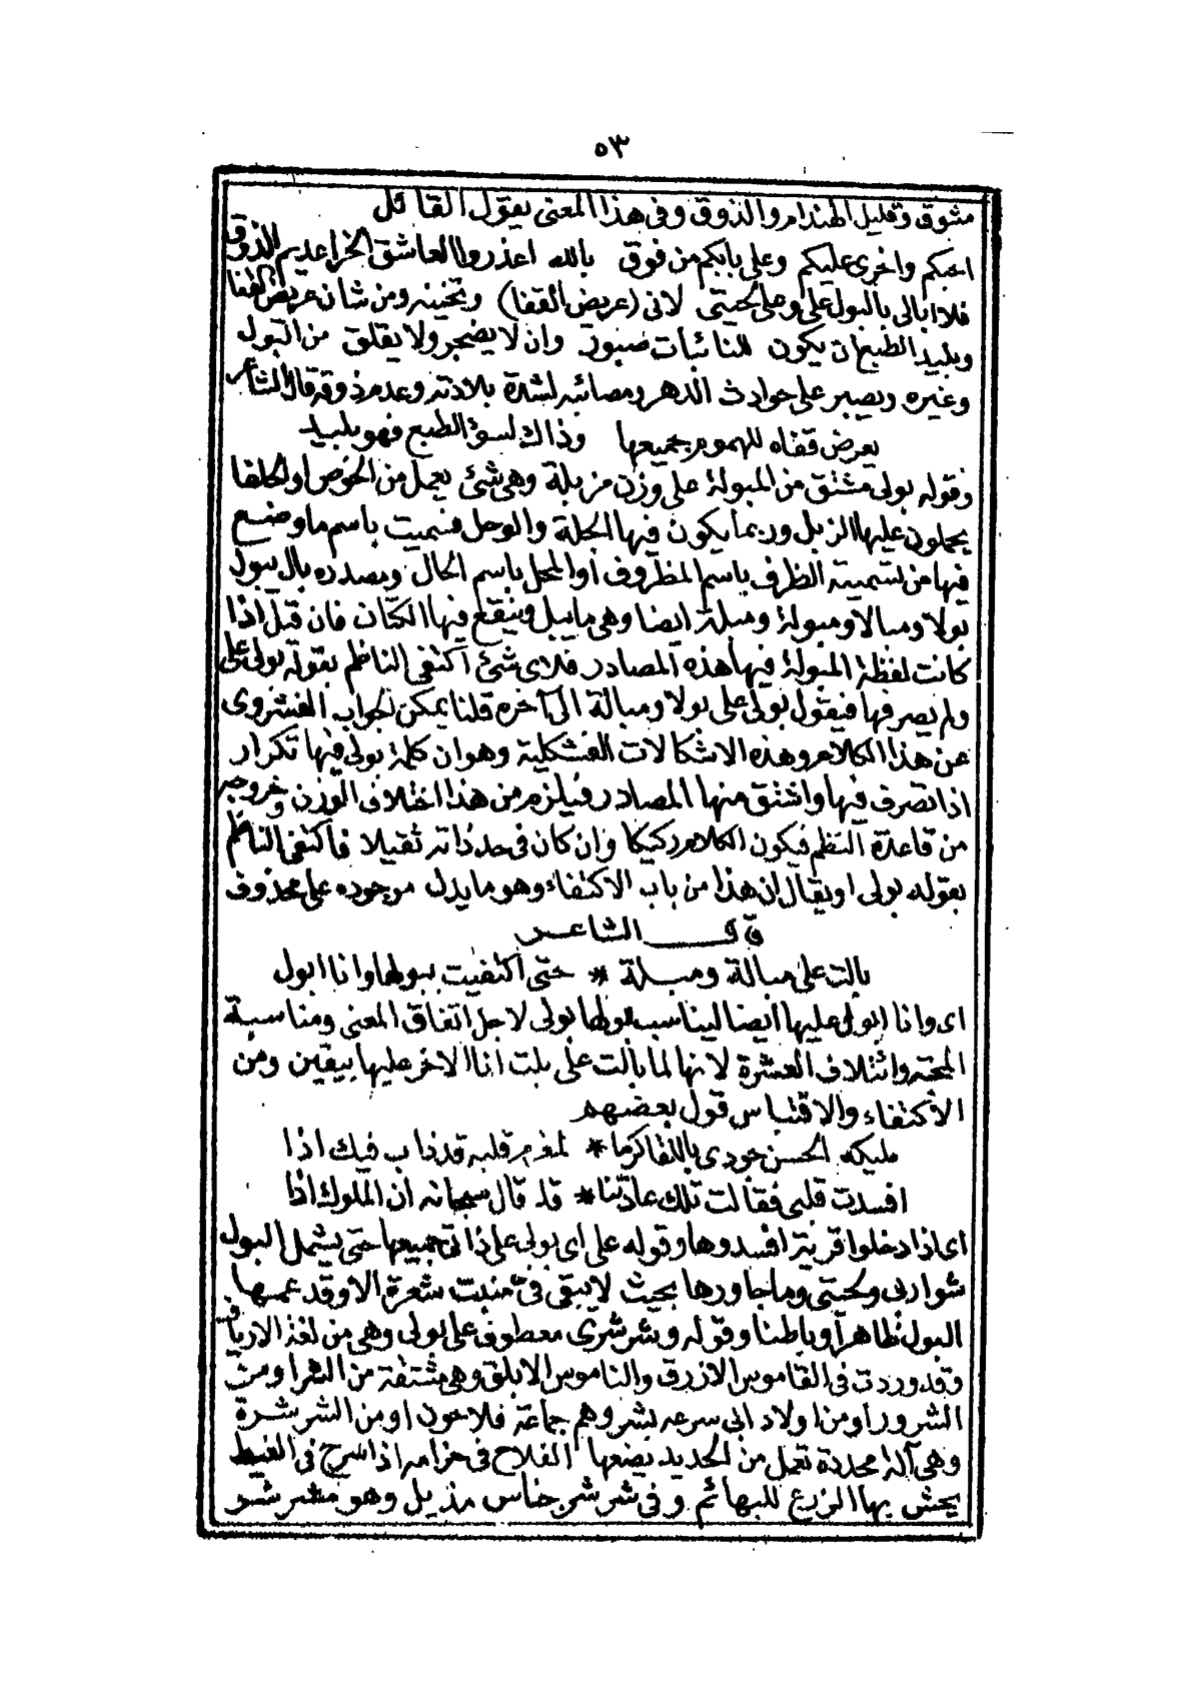 ٥٣
مشوق وقليل الهندام والذوق وفى هذا المعنى يقول القائل
احبكم واخرى عليكم وعلى بابكم من فوق بالله اعذروا العاشق الخرا عديم الذوق
فلا ابالى بالبول على وعلى لحيتى لانى (عريض القفا) وتخينه ومن شان عريض القفا
وبليد الطبع ان يكون للنائبات صبور وان لا يضجر ولا يقلق من البول
وغيره ويصبر على حوادث الدهر ومصائبه لشدة بلادته وعدم ذوقه قال الشاعر
يعرض قفاه للهموم جميعها وذاك لسوء الطبع فهو بليد
وقوله بولى مشتق من المبولة على وزن مزبلة وهى شئ يعمل من الخوص او الحلفا
يحملون عليها الزبل وربما يكون فيها الجلة والوحل فسميت باسم ما وضع
فيها من تسمية الظرف باسم المظروف او المحل باسم الحال ومصدره بال يبول
بولا ومبالا ومبولة ومبلة ايضا وهى ما يبل وينقع فيها الكتان فان قيل اذا
كانت لفظة المبولة فيها هذه المصادر فلاى شئ اكتفى الناظم بقوله بولى على
ولم يصرفها فيقول بولى على بولا ومبالة الى آخره قلنا يمكن الجواب الفشروى
عن هذا الكلام وهذه الاشكالات الفشكلية وهو ان كلمة بولى فيها تكرار
اذا تصرف فيها واشتق منها المصادر فيلزم من هذا اختلاف الوزن وخروجه
من قاعدة النظم فيكون الكلام ركيكا وان كان فى حد ذاته ثقيلا فاكتفى الناظم
بقوله بولى او يقال ان هذا من باب الاكتفاء وهو ما يدل موجوده على محذوف
قال الشاعر
بالت على مبالة ومبلة * حتى اكتفيت ببولها وانا ابول
اى وانا ابول عليها ايضا ليناسب بولها بولى لاجل اتفاق المعنى ومناسبة
المحبة وائتلاف العشرة لانها لما بالت على بلت انا الاخر عليها بيقين ومن
الاكتفاء والاقتباس قول بعضهم
مليكة الحسن جودى باللقا كرما * لمغرم قلبه قد ذاب فيك اذا
افسدت قلبى فقالت تلك عادتنا * قد قال سبحانه ان الملوك اذا
اى اذا دخلوا قرية افسدوها وقوله على اى بولى على ذاتى جميعها حتى يشمل البول
شواربى ولحيتى وما جاورها بحيث لا يبقى فى منبت شعرة الا وقد عمها
البول ظاهرا وباطنا وقوله وشرشرى معطوف على بولى وهى من لغة الارياف
وقد وردت فى القاموس الازرق والناموس الابلق وهى مشتقة من الشر او من
الشرور او من اولاد ابى سرعه بشر وهم جماعة فلاحون او من الشرشرة
وهى آلة محددة تعمل من الحديد يضعها الفلاح فى حزامه اذا سرح فى الغيط
يحش بها الزرع للبهائم وفى شرشر جناس مذيل وهو شر شر